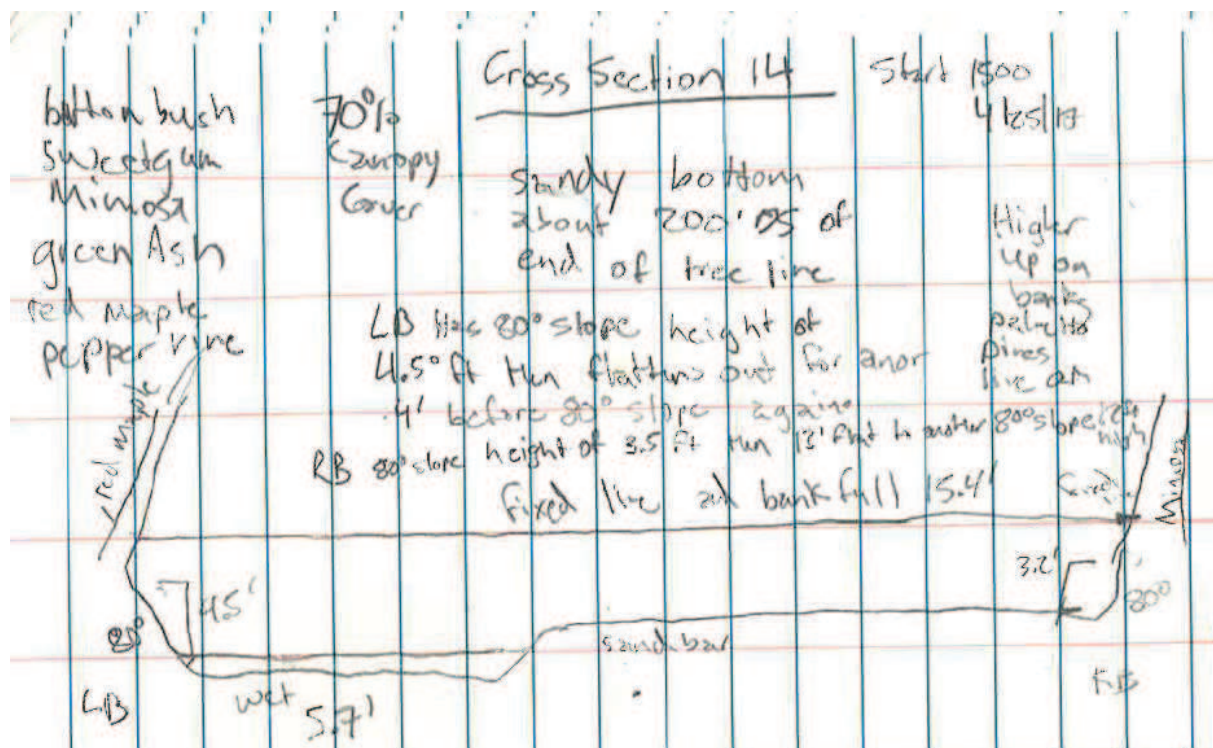 Cross Section 14
Start 1500
4/25/17
button bush
Sweetgum
Mimosa
green Ash
red maple
pepper vine
70%
Canopy
Cover
sandy bottom
about 200' DS of
end of tree line
Higher
up on
banks
palmetto
pines
live oak
LB Has 80° slope height of
4.5° ft then flattens out for anor
4' before 80° slope again
RB 80° slope height of 3.5 ft then 13' flat to another 80° slope
high
fixed line and bankfull 15.4'
red maple
Mimosa
4.5'
80°
LB
wet
5.7'
sand bar
3.2'
80°
RB